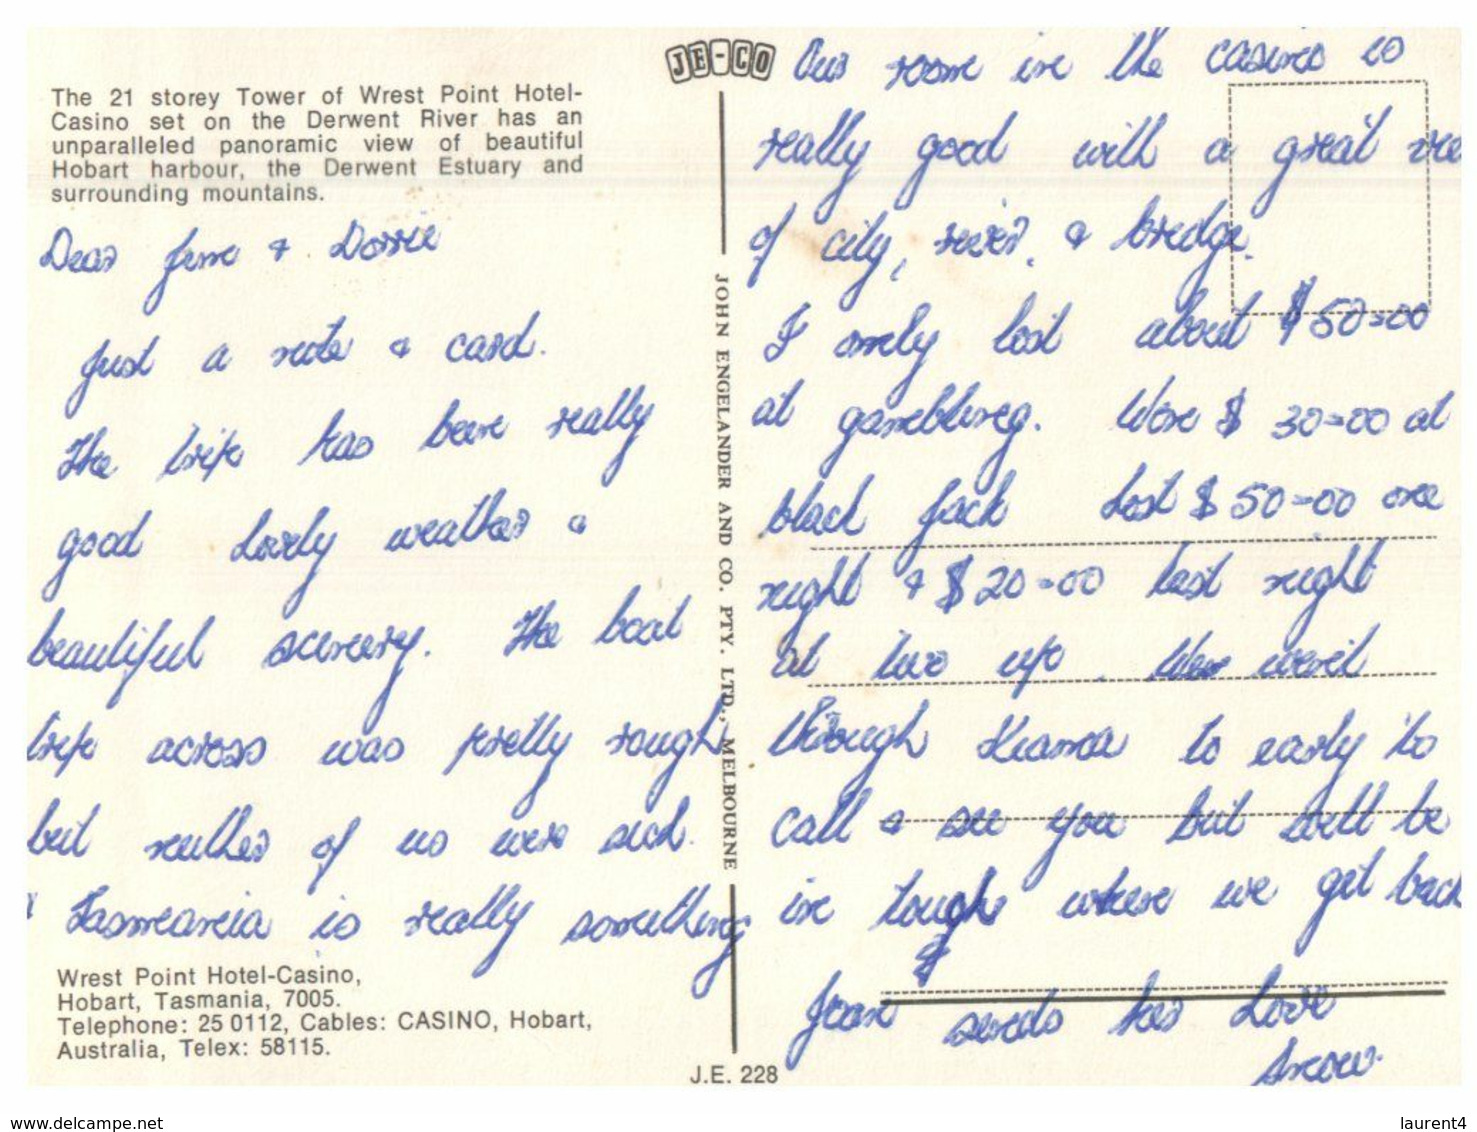 The 21 storey Tower of Wrest Point Hotel-
Casino set on the Derwent River has an
unparalleled panoramic view of beautiful
Hobart harbour, the Derwent Estuary and
surrounding mountains.
Dear June & Dorrie
Just a note & card.
The trip has been really
good lovely weather &
beautiful scenery. The boat
trip across was pretty rough
but neither of us were sick.
Tasmania is really something
Wrest Point Hotel-Casino,
Hobart, Tasmania, 7005.
Telephone: 25 0112, Cables: CASINO, Hobart,
Australia, Telex: 58115.
JE-CO
JOHN ENGELANDER AND CO. PTY. LTD., MELBOURNE
J.E. 228
Our room in the casino is
really good with a great vie
of city, river, & bridge.
I only lost about $50=00
at gambling. Won $30=00 at
black Jack Lost $50=00 one
night & $20=00 last night
at two up. Was went
through Kiama to early to
call & see you but will be
in tough when we get back
Joan sends her Love
Snow.
delcampe.net
laurent4